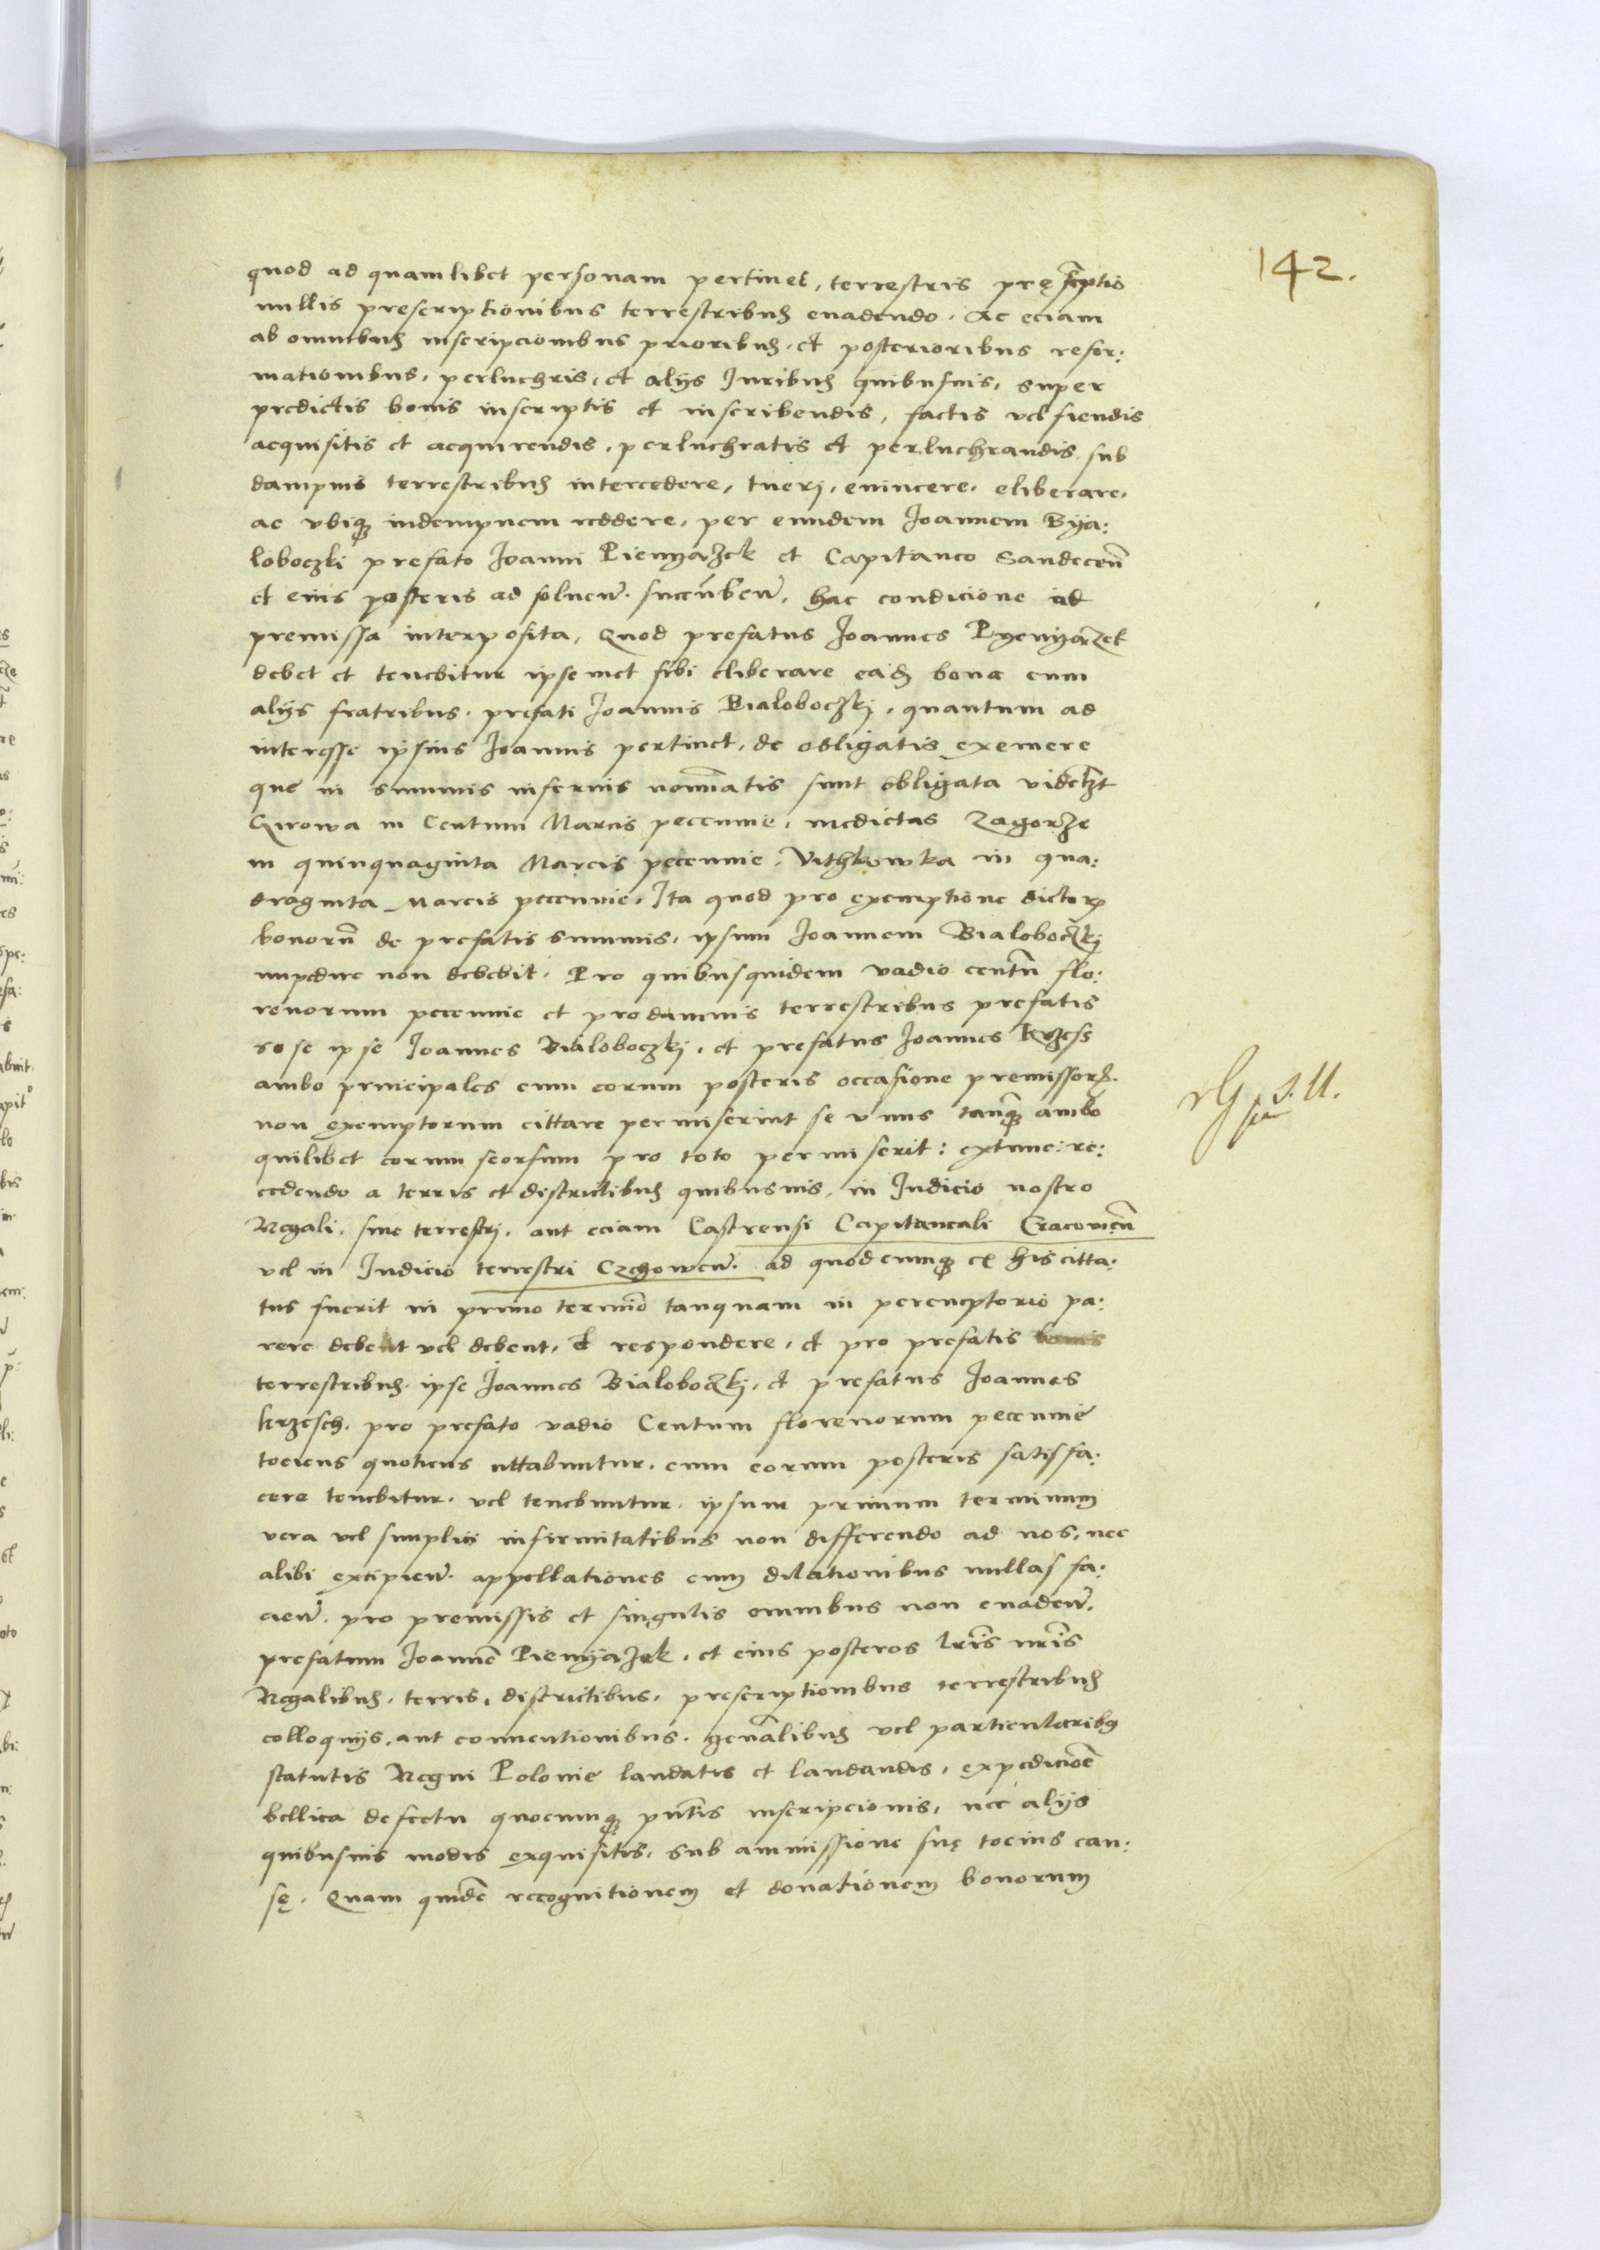 142.
quod ad quamlibet personam pertinet, terrestris pręscrptio
nullis prescriptionibus terrestribus euadendo. Ac eciam
ab omnibus inscripcionibus prioribus, et posterioribus refor:
mationibus, perluchris, et alijs Juribus quibusuis, super
predictis bonis inscriptis et inscribendis, factis vel fiendis
acquisitis et acquirendis, perluchratis et perluchrandis sub
dampnis terrestribus intercedere, tueri, euincere, eliberare,
ac vbique indempnem reddere, per eundem Joannem Bya:
loboczki prefato Joanni Pienyazek et Capitaneo Sandecen
et eius posteris ad soluen. succumben. hac condicione ad
premissa interposita, Quod prefatus Joannes Pyenyazek
debet et tenebitur ipsemet sibi eliberare eadem bona cum
alijs fratribus prefati Joannis Bialoboczkj, quantum ad
interesse ipsius Joannis pertinet, de obligatis exemere
que in summis infernis nominatis sunt obligata videlicet
in Centum Marcis peccunie, medietas Zagorze
in quinquaginta Marcis peccunie, Vithkowka in qua:
draginta Marcis peccunie, Ita quod pro exemptione dictorum
bonorum de prefatis summis, ipsum Joannem Bialoboczkj
impedire non debebit. Pro quibusquidem vadio centum flo:
renorum peccunie et pro damnis terrestribus prefatis
ipse Joannes Bialoboczkj, et prefatus Joannes Krzess
ambo principales cum eorum posteris occasione premissorum
non exemptorum cittare permiserint se vnus tanquam ambo
quilibet eorum seorsum pro toto permiserit: extunc: re:
cedendo a terris et districtibus quibusuis, in Judicio nostro
Regali, siue terrestri, aut eciam Castrensi Capitaneali Cracouien
vel in Judicio terrestri Czchowen. ad quodcumque ex his citta:
tus fuerit in primo termino tanquam in peremptorio pa:
rere debent vel debent, et respondere, et pro prefatis
terrestribus ipse Joannes Bialoboczkj, et prefatus Joannes
Krzesch pro prefato vadio Centum florenorum peccunie
tociens quotiens cittabuntur, cum eorum posteris satisfa:
cere tenebitur vel tenebuntur ipsum primum terminum
vera vel simplici infirmitatibus non differendo ad nos, nec
alibi excipien. appellationes cum dilationibus nullas fa:
cien. pro premissis et singulis omnibus non euaden.
prefatum Joannem Pienyazek, et eius posteros lris nris
Regalibus, terris, districtibus, prescriptionibus terrestribus
colloquijs, aut conuentionibus generalibus vel particularibus
statutis Regni Polonie laudatis et laudandis, expedicioe
bellica defectu quocumque pntis inscripcionis, nec alijs
quibusuis modis exquisitis, sub ammissione suę tocius cau:
sę. Quam quidem recognitionem et donationem bonorum